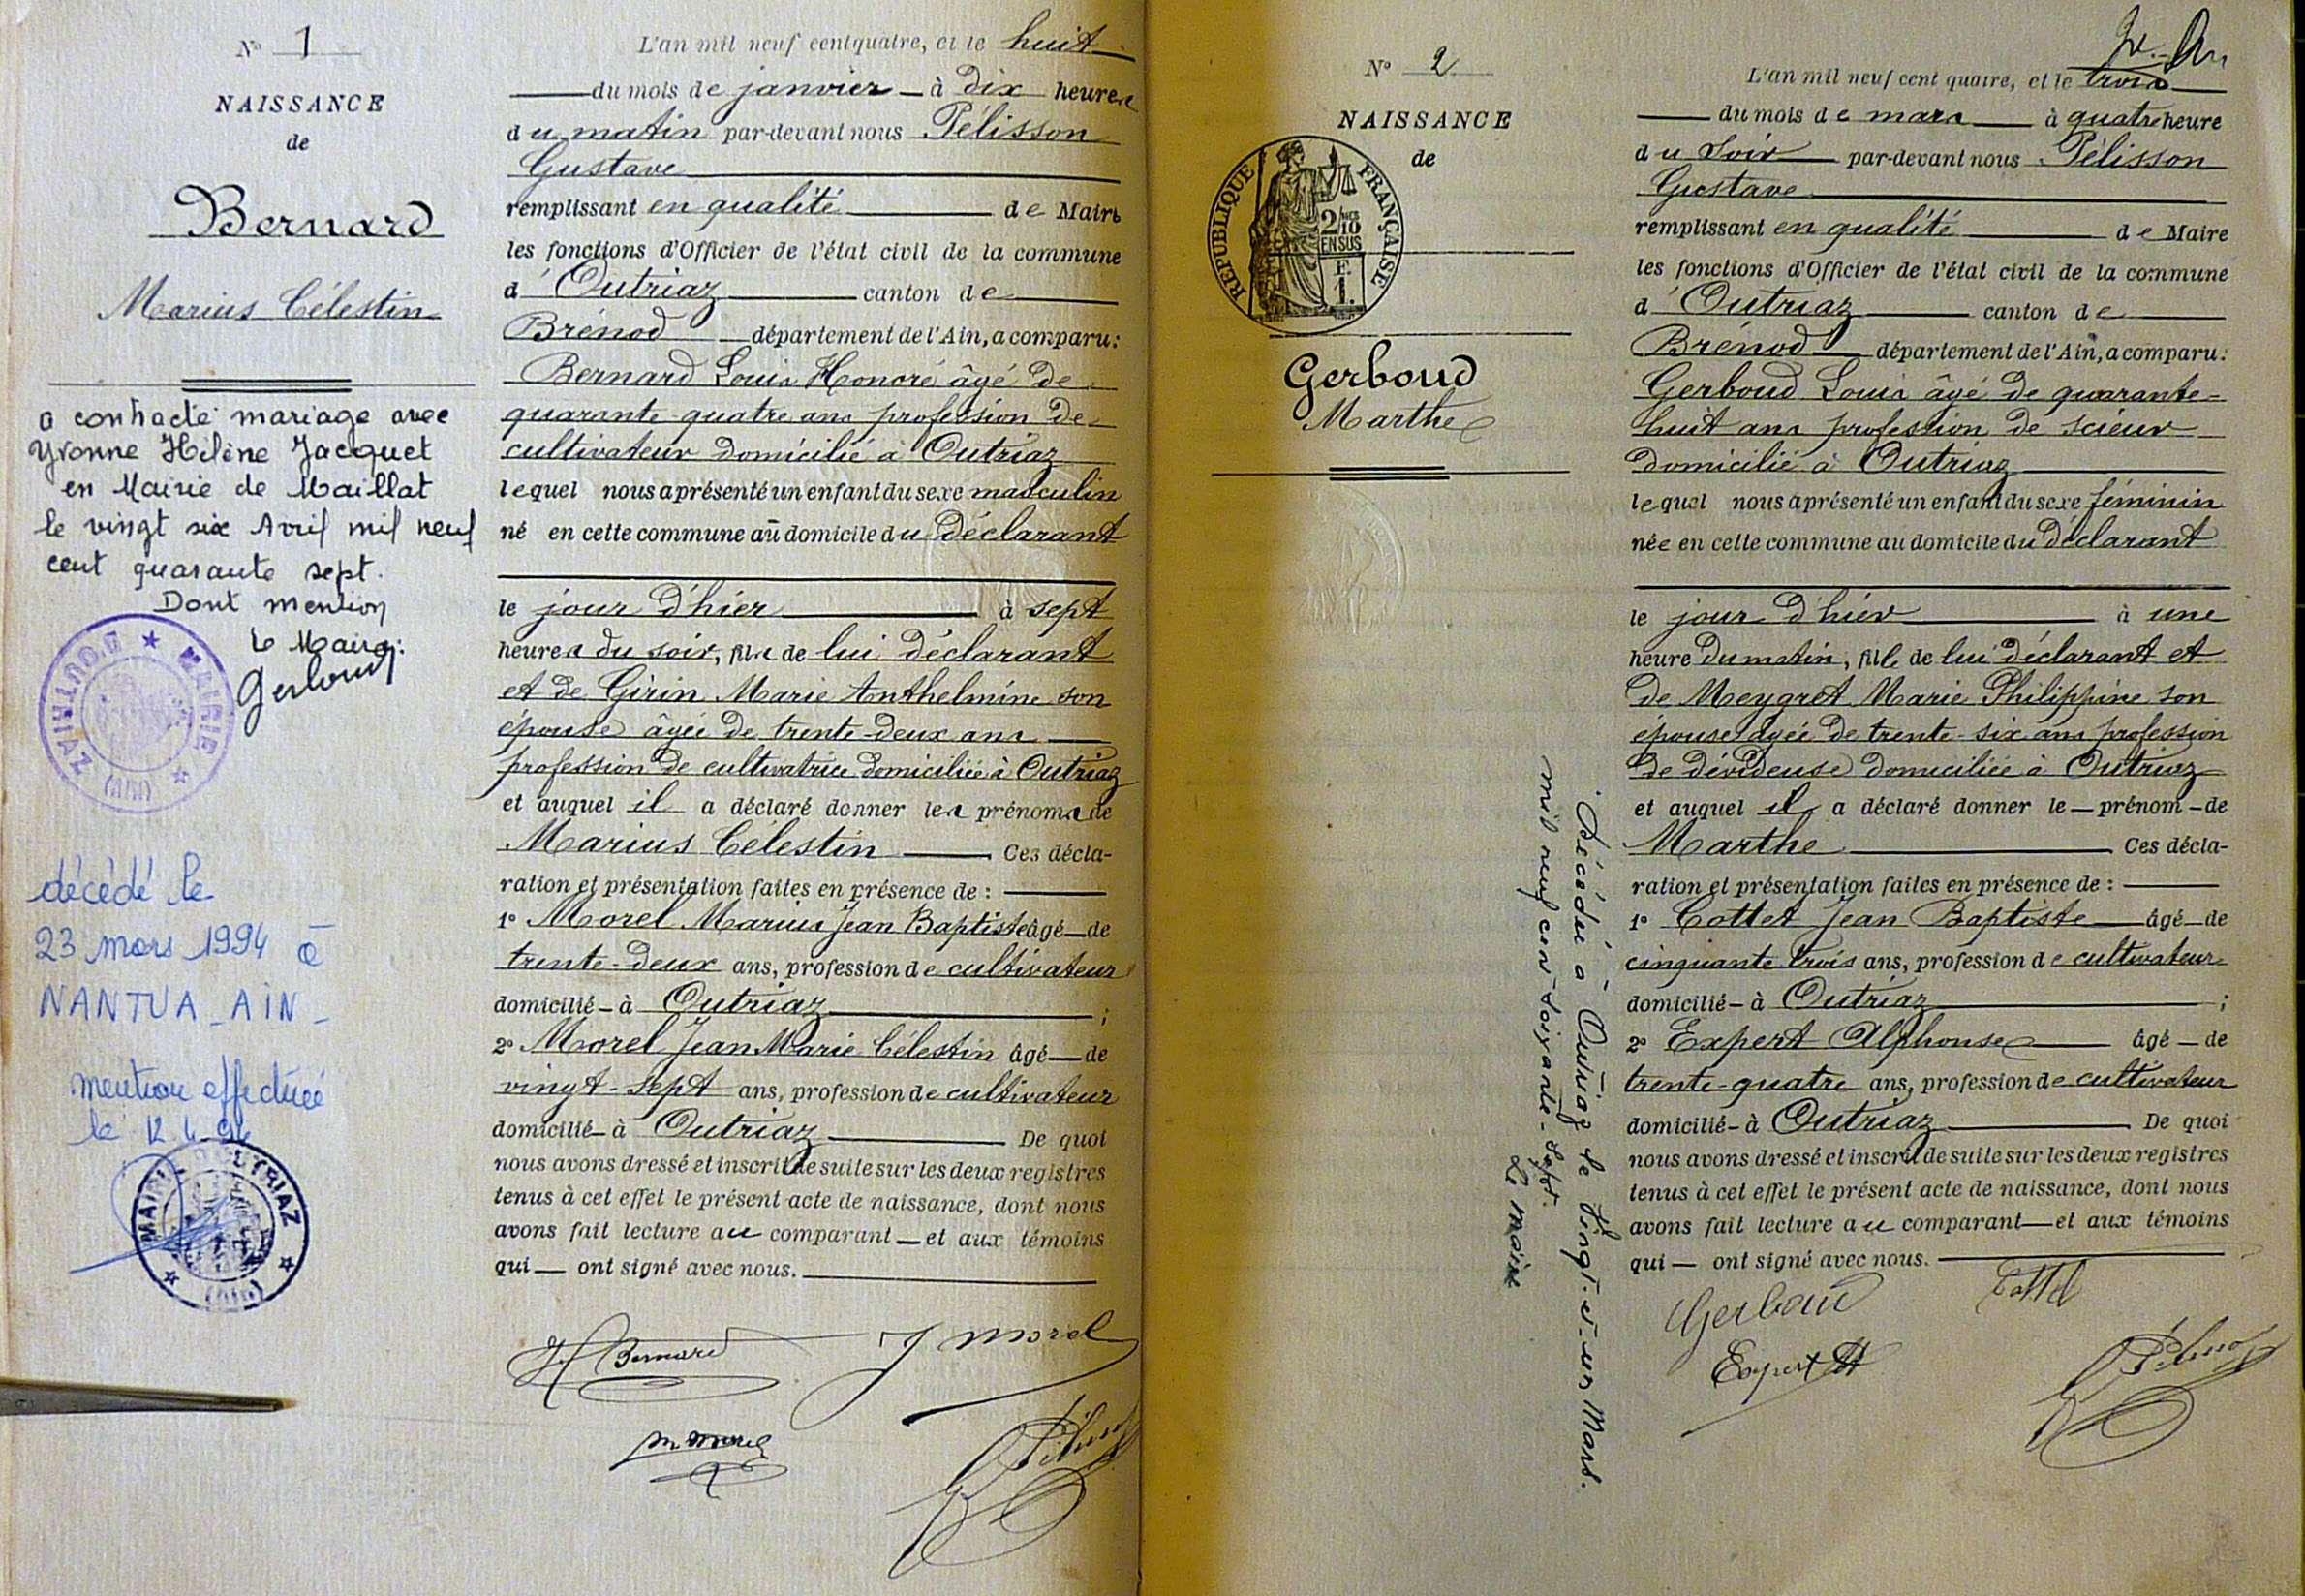 N° 1
NAISSANCE
de
Bernard
Marius Célestin
a contracté mariage avec
Yvonne Hélène Jacquet
en Mairie de Maillat
le vingt six Avril mil neuf
cent quarante sept.
Dont mention
Le Maire:
Gerboud
MAIRIE D'OUTRIAZ (AIN)
décédé le
23 mars 1994 à
NANTUA - AIN -
mention effectuée
le 12 4 94
MAIRIE D'OUTRIAZ (AIN)
L'an mil neuf cent quatre, et le huit
du mois de janvier à dix heures
du matin par-devant nous Pélisson
Gustave
remplissant en qualité de Maire
les fonctions d'Officier de l'état civil de la commune
d' Outriaz canton de
Brénod département de l'Ain, a comparu:
Bernard Louis Honoré âgé de
quarante-quatre ans profession de
cultivateur domicilié à Outriaz
lequel nous a présenté un enfant du sexe masculin
né en cette commune au domicile du déclarant
le jour d'hier à sept
heures du soir, fils de lui déclarant
et de Girin Marie Anthelmine son
épouse âgée de trente-deux ans
profession de cultivatrice domiciliée à Outriaz
et auquel il a déclaré donner les prénoms de
Marius Célestin Ces décla-
ration et présentation faites en présence de :
1° Morel Marius Jean Baptiste âgé de
trente-deux ans, profession de cultivateur
domicilié à Outriaz ;
2° Morel Jean Marie Célestin âgé de
vingt-sept ans, profession de cultivateur
domicilié à Outriaz De quoi
nous avons dressé et inscrit de suite sur les deux registres
tenus à cet effet le présent acte de naissance, dont nous
avons fait lecture au comparant et aux témoins
qui ont signé avec nous.
H Bernard J Morel
M Morel Pélisson
N° 2
NAISSANCE
de
RÉPUBLIQUE FRANÇAISE
2/10
EN SUS
F.
1.
Gerboud
Marthe
Décédée à Outriaz le vingt-et-un Mars.
mil neuf cent-soixante-sept.
Le Maire
L'an mil neuf cent quatre, et le trois
du mois de mars à quatre heure
du soir par-devant nous Pélisson
Gustave
remplissant en qualité de Maire
les fonctions d'Officier de l'état civil de la commune
d' Outriaz canton de
Brénod département de l'Ain, a comparu:
Gerboud Louis âgé de quarante-
huit ans profession de scieur
domicilié à Outriaz
lequel nous a présenté un enfant du sexe féminin
née en cette commune au domicile du déclarant
le jour d'hier à une
heure du matin, fille de lui déclarant et
de Meygret Marie Philippine son
épouse âgée de trente-six ans profession
de dévideuse domiciliée à Outriaz
et auquel il a déclaré donner le prénom de
Marthe Ces décla-
ration et présentation faites en présence de :
1° Cottet Jean Baptiste âgé de
cinquante trois ans, profession de cultivateur
domicilié à Outriaz ;
2° Expert Alphonse âgé de
trente-quatre ans, profession de cultivateur
domicilié à Outriaz De quoi
nous avons dressé et inscrit de suite sur les deux registres
tenus à cet effet le présent acte de naissance, dont nous
avons fait lecture au comparant et aux témoins
qui ont signé avec nous.
Gerboud Cottet
Expert A Pélisson